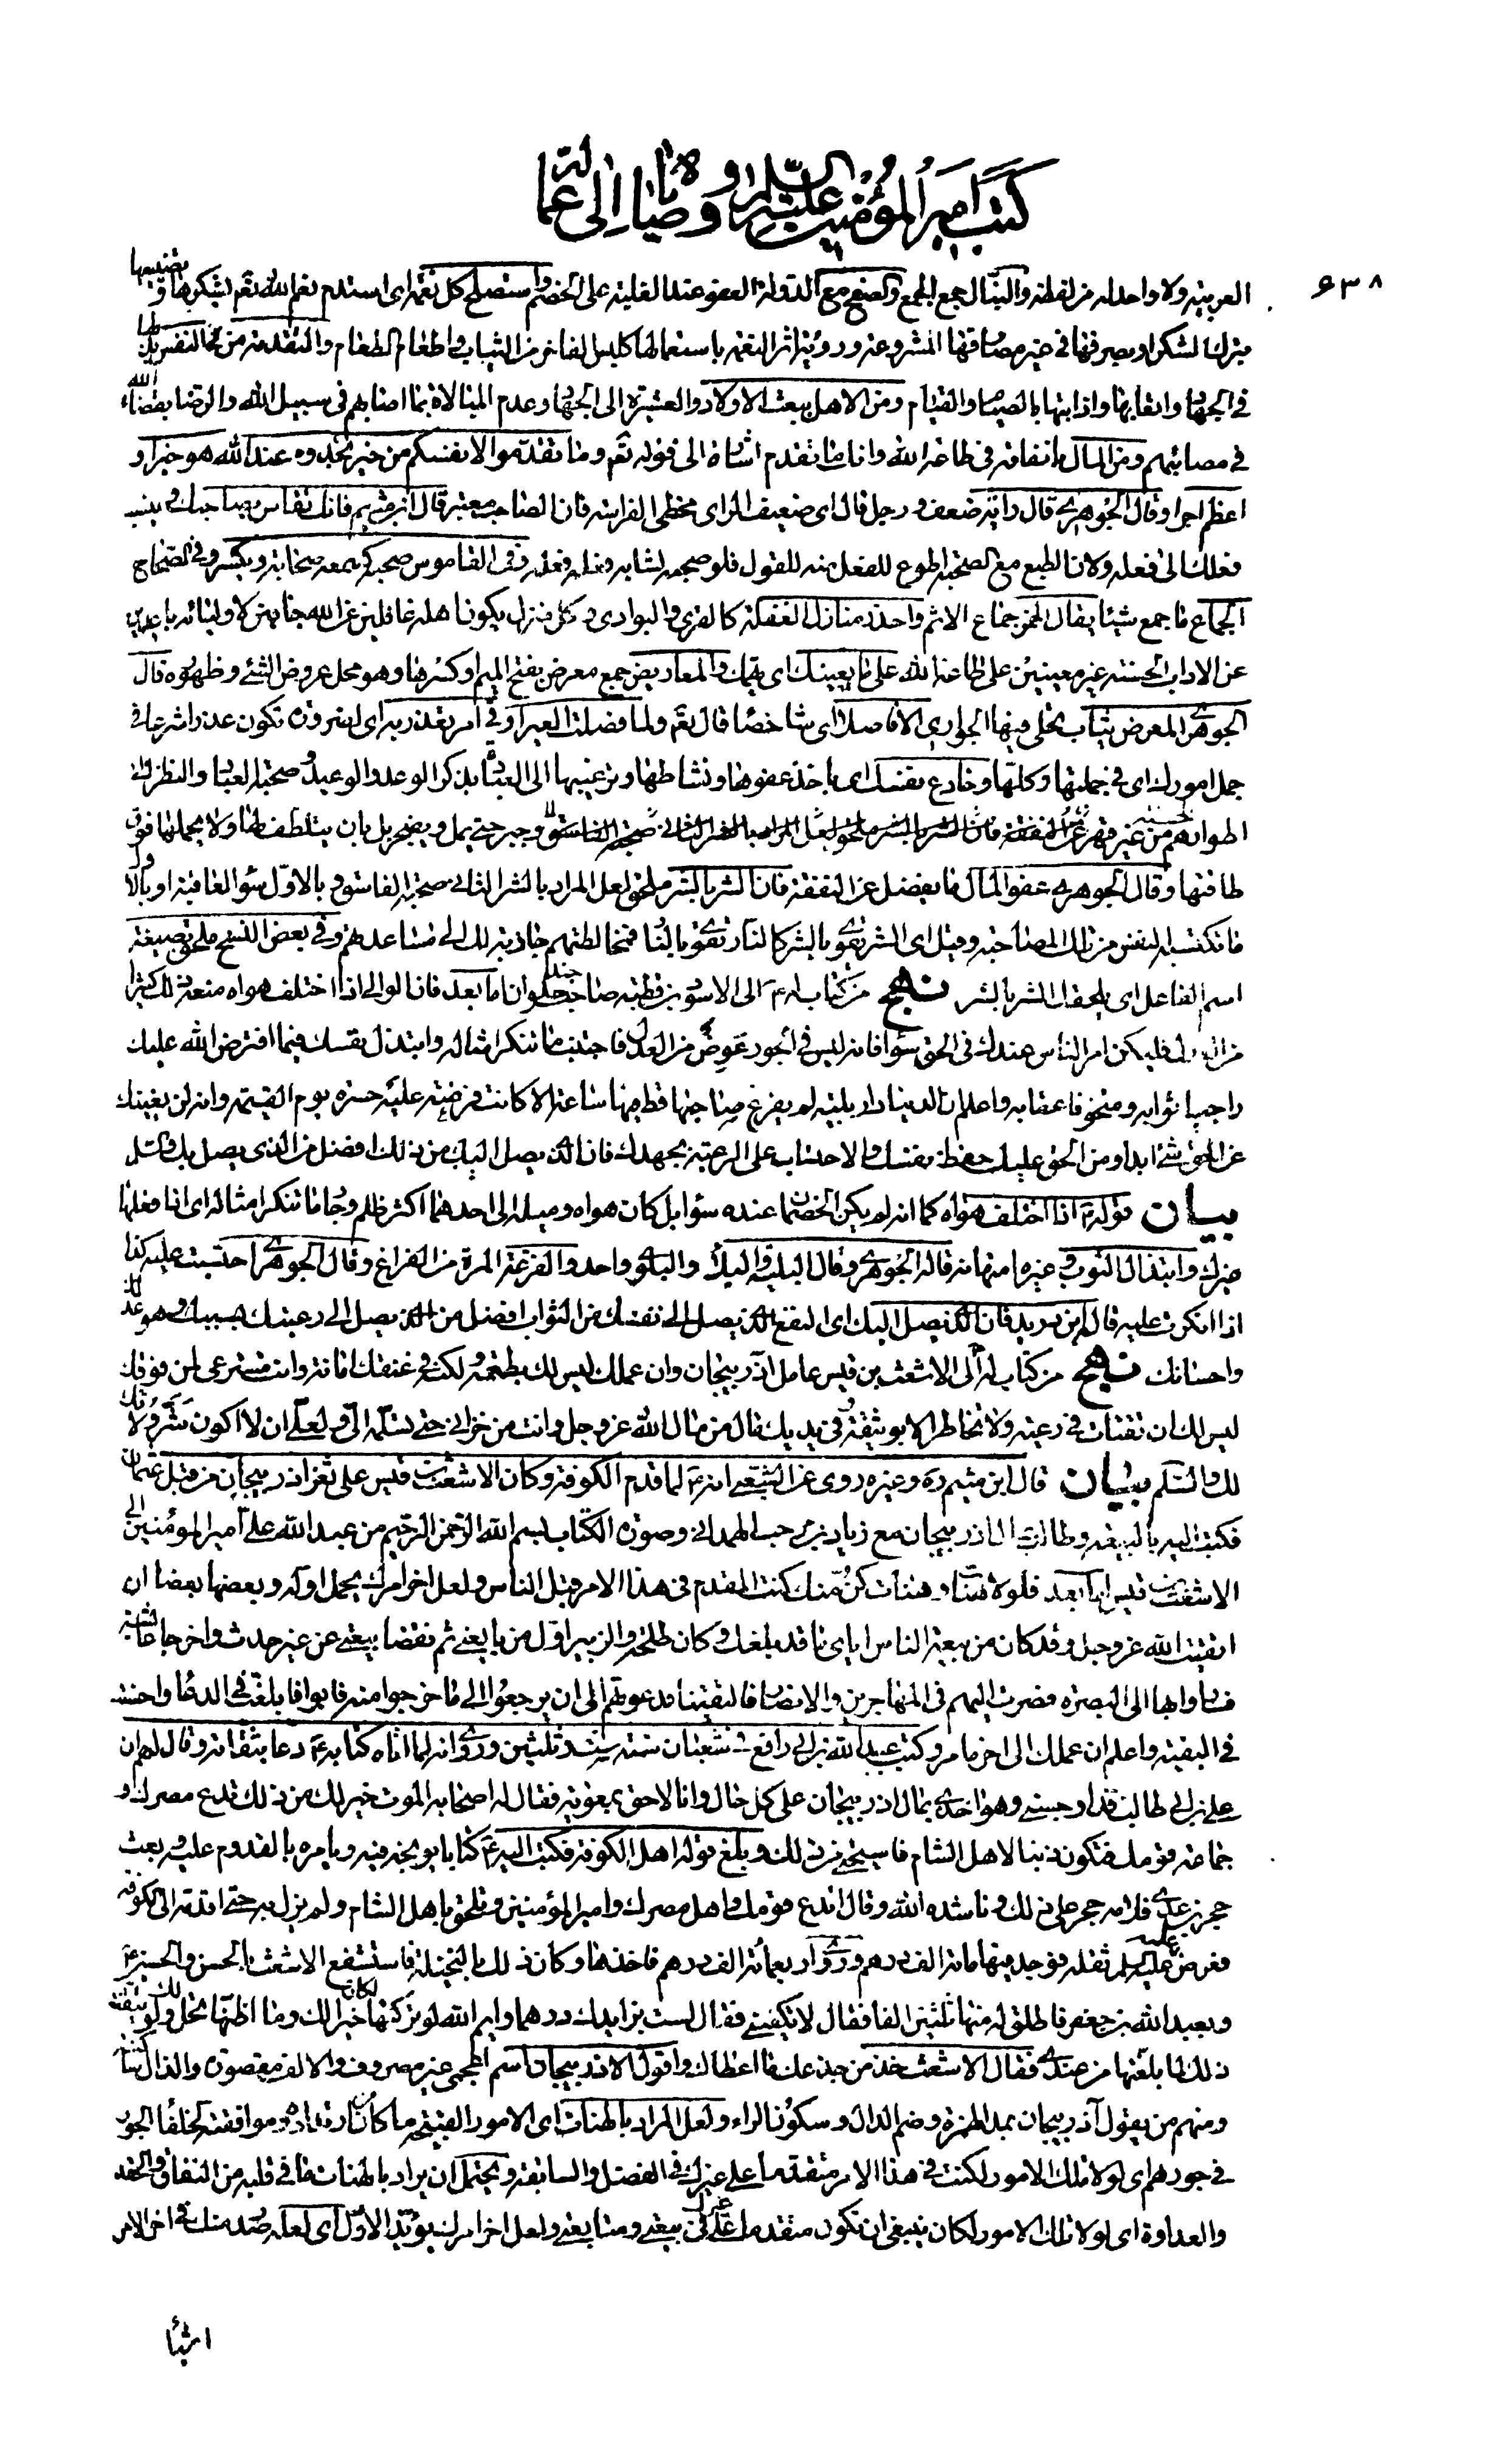 كتب أمير المؤمنين عليه السلام ووصاياه إلى عماله
٦٣٨
العربية ولا واحد له من لفظه والنبال جمع الجمع والصفح مع الدولة العفو عند الغلبة على الخصم واستصلح كل نعمة اى استدم نعم الله تعم بشكرها وتضييعها
بترك الشكر او بصرفها فى غير مصارفها المشروعة ورؤية اثر النعمة باستعمالها كلبس الفاخر من الثياب واطعام الطعام والتقدمة من النفس بذلها
فى الجهاد واتعابها واذابتها بالصيام والقيام ومن الاهل ببعث الاولاد والعشيرة الى الجهاد وعدم المبالاة بما اصابهم فى سبيل الله والرضا بقضاء الله
فى مصائبهم ومن المال بانفاقه فى طاعة الله واما ما تقدم اشارة الى قوله تعم وما تقدموا لانفسكم من خير تجدوه عند الله هو خيرا و
اعظم اجرا وقال الجوهرى قال رايه ضعف ورجل قال اى ضعيف الراى مخطئ الفراسة فان الصاحب معتبر قال ابن ميثم فانك تقاس بصاحبك وينسب
فعلك الى فعله ولان الطبع مع الصحبة اطوع للفعل منه للقول فلو صحبه لشابه فعله فعله وفى القاموس صحبه كسمعه صحابة ويكسر وفى الصحاح
الجماع ما جمع شيئا يقال الخمر جماع الاثم واحذر منازل الغفلة كالقرى والبوادى وكل منزل يكون اهله غافلين عن الله جافين لاوليائه باعدين
عن الاداب الحسنة غير معينين على طاعة الله على ما يعينك اى يهمك والمعاريض جمع معرض بفتح الميم او كسرها وهو محل عروض الشئ وظهوره قال
الجوهرى المعرض ثياب تجلى فيها الجوارى الا فاصلا اى شاخصا قال تعم ولما فصلت العير او فى امر تعذر به اى لضرورة تكون عذرا شرعا فى
جمل امورك اى فى جملتها وكلها وخادع نفسك اى باخذ عفوها ونشاطها وترغيبها الى العبادة بذكر الوعد والوعيد وصحبة العباد والنظر الى
اطوارهم الحسنة من غير قهر بان يتلطف لها ولا يحملها فوق
طاقتها وقال الجوهرى عفو المال ما يفضل عن النفقة فان الشر بالشر ملحق لعل المراد بالشر الثانى صحبة الفاسق وبالاول سؤ العاقبة او بالاول
ما تكتسبه النفس من تلك المصاحبة وقيل اى الشر يقوى بالشر كالنار تقوى بالنار فمخالطتهم جاذبة لك الى مساعدتهم وفى بعض النسخ ملحق بصيغة
اسم الفاعل اى يلحقك الشر بالشر نهج من كتاب له ع الى الاسود بن قطبة صاحب جند حلوان اما بعد فان الوالى اذا اختلف هواه منعه ذلك كثيرا
من العدل فليكن امر الناس عندك فى الحق سؤا فانه ليس فى الجور عوض من العدل فاجتنب ما تنكر امثاله وابتذل نفسك فيما افترض الله عليك
راجيا ثوابه ومتخوفا عقابه واعلم ان الدنيا دار بلية لم يفرغ صاحبها قط فيها ساعة الا كانت فرغته عليه حسرة يوم القيمة وانه لن يغنيك
عن الحق شئ ابدا ومن الحق عليك حفظ نفسك والاحتساب على الرعية بجهدك فان الذى يصل اليك من ذلك افضل من الذى يصل بك والسلم
بيان قوله ع اذا اختلف هواه كما انه لم يكن الخصمان عنده سؤا بل كان هواه وميله الى احدهما اكثر ظلم وجار ما تنكر امثاله اى اذا فعلها
غيرك وابتذال الثوب وغيره امتهانه قاله الجوهرى وقال البلية والبلاء والبلوى واحد والفرغة المرة من الفراغ وقال الجوهرى احتسبت عليه كذا
اذا انكرته عليه قال ابن دريد فان الذى يصل اليك اى النفع الذى يصل الى نفسك من الثواب افضل من الذى يصل الى رعيتك بسببك وهو عدلك
واحسانك نهج من كتاب له ع الى الاشعث بن قيس عامل آذربيجان وان عملك ليس لك بطعمة ولكنه فى عنقك امانة وانت مسترعى لمن فوقك
ليس لك ان تفتات فى رعية ولا تخاطر الا بوثيقة وفى يديك مال من مال الله عز وجل وانت من خزانى حتى تسلمه الى ولعلى ان لا اكون شر ولاتك
لك والسلم بيان قال ابن ميثم ره وغيره روى عن الشعبى انه ع لما قدم الكوفة وكان الاشعث بن قيس على ثغر اذربيجان من قبل عثمان
فكتب اليه بالبيعة وطالبه بمال اذربيجان مع زياد بن مرحب الهمدانى وصورة الكتاب بسم الله الرحمن الرحيم من عبد الله على امير المؤمنين الى
الاشعث بن قيس اما بعد فلولا هنات وهنات كن منك كنت المقدم فى هذا الامر قبل الناس ولعل اخر امرك يحمل اوله وبعضها بعضا ان
اتقيت الله عز وجل وقد كان من بيعة الناس اياى ما قد بلغك وكان طلحة والزبير اول من بايعنى ثم نقضا بيعتى عن غير حدث واخرجا عائشة
فساروا بها الى البصرة فصرت اليهم فى المهاجرين والانصار فالتقينا فدعوتهم الى ان يرجعوا الى ما خرجوا منه فابوا فابلغت فى الدعاء واحسنت
فى البقية واعلم ان عملك الى اخر ما مر وكتب عبد الله بن ابى رافع فى شعبان سنة ست وثلثين وروى انه لما اتاه كتابه ع دعا بثقاته وقال لهم ان
على بن ابى طالب قد اوحشنى وهو اخذى بمال اذربيجان على كل حال وانا لاحق بمعوية فقال له اصحابه الموت خير لك من ذلك تدع مصرك و
جماعة قومك فتكون ذنبا لاهل الشام فاستحيى من ذلك وبلغ قوله اهل الكوفة فكتب اليه ع كتابا يوبخه فيه ويامره بالقدوم عليه وبعث
حجر بن عدى فلامه حجر على ذلك وناشده الله وقال اتدع قومك واهل مصرك وامير المؤمنين وتلحق باهل الشام ولم يزل به حتى اقدمه الى الكوفة
فعرض عليه السلم ثقله فوجد فيها مائة الف درهم وروى اربعمائة الف درهم فاخذها وكان ذلك بالنخيلة فاستشفع الاشعث بالحسن والحسين ع
وبعبد الله بن جعفر فاطلق له منها ثلثين الفا فقال لا تكفينى فقال لست بزايدك درهما وايم الله لو تركتها لكان خيرا لك وما اظنها تحل لك ولو تيقنت
ذلك لما بلغتها من عندى فقال الاشعث خذ من جذعك ما اعطاك واقول الاذربيجان اسم اعجمى غير مصروف والالف مقصورة والذال ساكنة
ومنهم من يقول آذربيجان بمد الهمزة وضم الذال وسكون الراء ولعل المراد بالهنات اى الامور القبيحة ما كان من ارتداده وموافقته لخلفاء الجور
فى جورهم اى لولا تلك الامور لكنت فى هذا الامر متقدما على غيرك فى الفضل والسابقة ويحتمل ان يراد بالهنات ما فى قلبه من النفاق والحقد
والعداوة اى لولا تلك الامور لكان ينبغى ان تكون متقدما على غيرك فى بيعتى ومتابعتى ولعل اخر امرك يؤيد الاول اى لعله صدر منك فى اخر الامر
اشياء